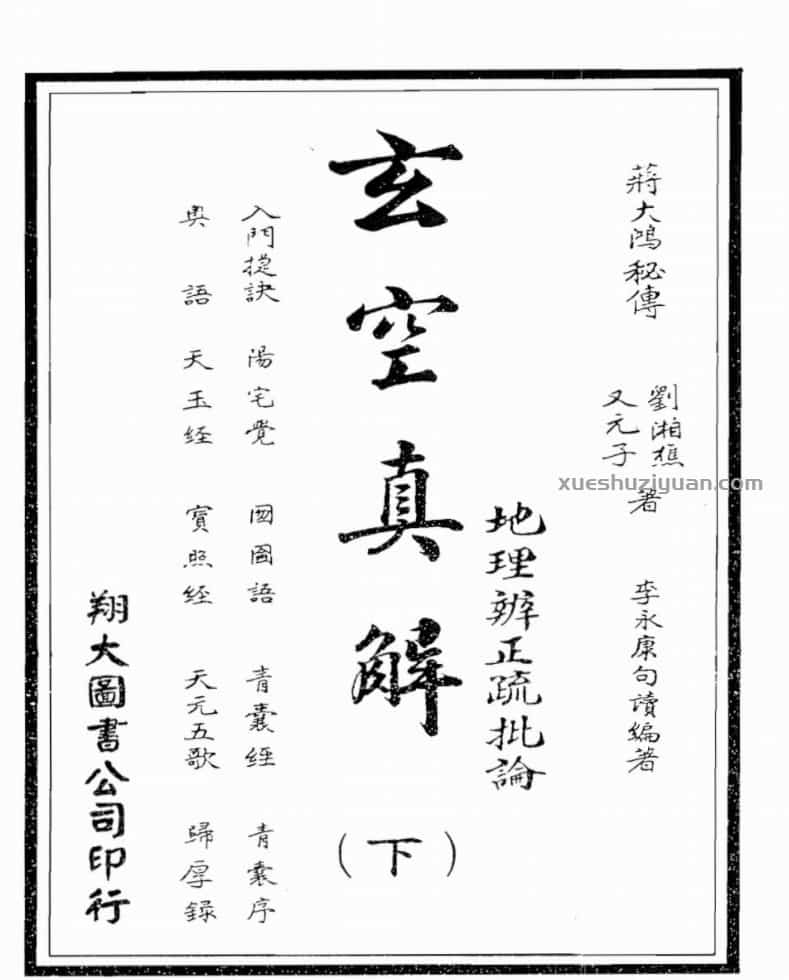 蔣大鴻秘傳
劉湘樵
又元子
著
李永康句讀編著
地理辨正疏批論
玄空真解
(下)
入門捷訣 陽宅覺 國語 青囊經 青囊序
奧語 天玉経 寶照経 天元五歌 歸厚錄
翔大圖書公司印行
xueshuziyuan.com